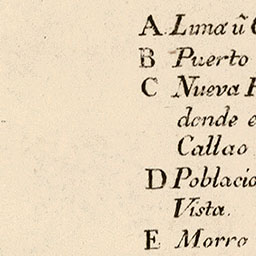 A Lima ũ
B Puerto
C Nueva
donde
Callao
D Poblacio
Vista.
E Morro